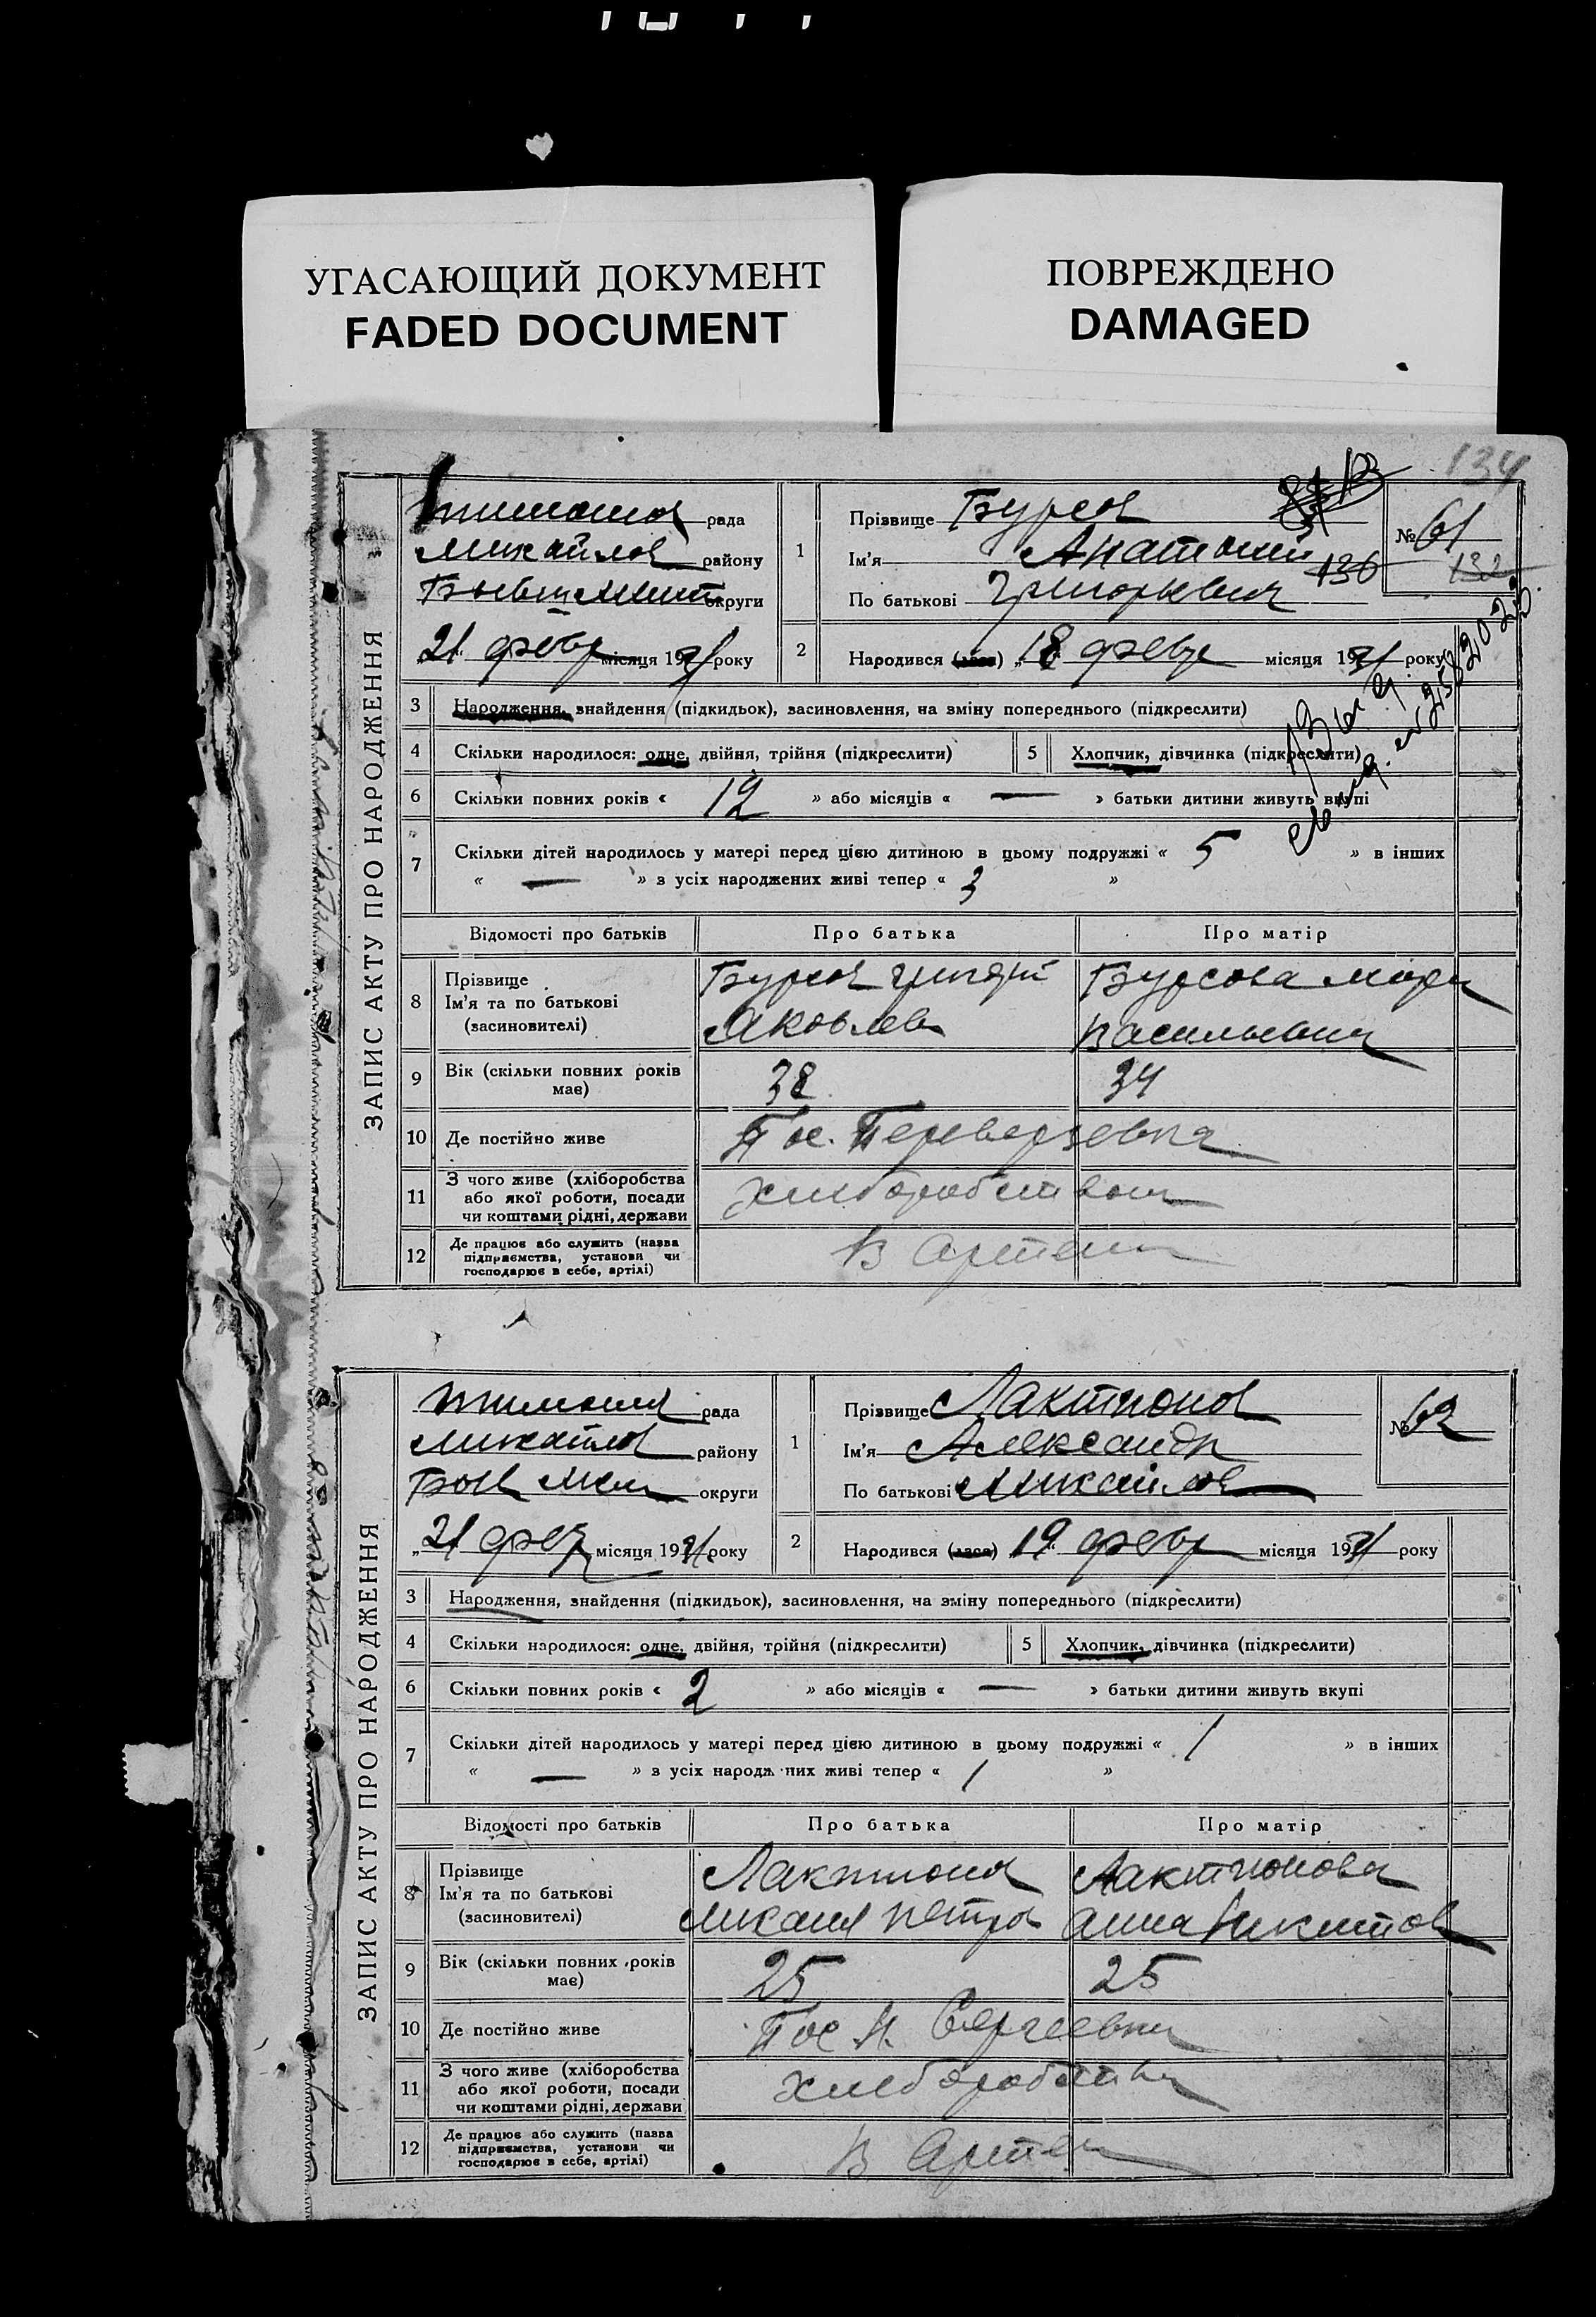 УГАСАЮЩИЙ ДОКУМЕНТ
FADED DOCUMENT
ПОВРЕЖДЕНО
DAMAGED
134
ЗАПИС АКТУ ПРО НАРОДЖЕННЯ
рада
Михайлов району
округи
21 февр місяця 1931 року
1
Прізвище Бурсов
Ім'я Анатолий
136
По батькові Григорьевич
№ 61
132
2
Народився (лася) „18“ февр місяця 1931 року
3 Народження, знайдення (підкидьок), засиновлення, на зміну попереднього (підкреслити)
4 Скільки народилося: одне, двійня, трійня (підкреслити) 5 Хлопчик, дівчинка (підкреслити)
6 Скільки повних років « 12 » або місяців « — » батьки дитини живуть вкупі
7 Скільки дітей народилось у матері перед цією дитиною в цьому подружжі « 5 » в інших
« — » з усіх народжених живі тепер « 3 »
Відомості про батьків Про батька Про матір
8 Прізвище
Ім'я та по батькові
(засиновителі)
Бурсов Григорий
Яковлев
Бурсова Мария
Васильевна
9 Вік (скільки повних років має) 38 34
10 Де постійно живе Пос. Переверзевка
11 З чого живе (хліборобства
або якої роботи, посади
чи коштами рідні, держави
Хлеборобством
12 Де працює або служить (назва
підприємства, установи чи
господарює в себе, артілі)
В Артели
ЗАПИС АКТУ ПРО НАРОДЖЕННЯ
рада
Михайлов району
округи
„21 фев місяця 1931 року
1
Прізвище Лактионов
Ім'я Александр
По батькові Михайлов
№ 62
2
Народився (лася) „19“ февр місяця 1931 року
3 Народження, знайдення (підкидьок), засиновлення, на зміну попереднього (підкреслити)
4 Скільки народилося: одне, двійня, трійня (підкреслити) 5 Хлопчик, дівчинка (підкреслити)
6 Скільки повних років « 2 » або місяців « — » батьки дитини живуть вкупі
7 Скільки дітей народилось у матері перед цією дитиною в цьому подружжі « 1 » в інших
« — » з усіх народж них живі тепер « 1 »
Відомості про батьків Про батька Про матір
8 Прізвище
Ім'я та по батькові
(засиновителі)
Лактионов
Михаил Петров
Лактионова
Анна Никитов
9 Вік (скільки повних років має) 25 25
10 Де постійно живе Пос Н. Сергеевка
11 З чого живе (хліборобства
або якої роботи, посади
чи коштами рідні, держави
Хлеборобством
12 Де працює або служить (назва
підприємства, установи чи
господарює в себе, артілі)
В Артели